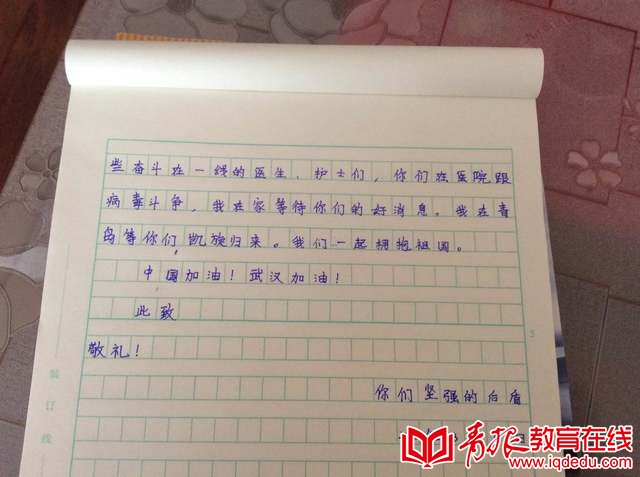 些奋斗在一线的医生、护士们，你们在医院跟
病毒斗争，我在家等待你们的好消息。我在青
岛等你们，凯旋归来。我们一起拥抱祖国。
中国加油！武汉加油！
此致
敬礼！
你们坚强的后盾
装
订
线
青报教育在线
www.iqdedu.com